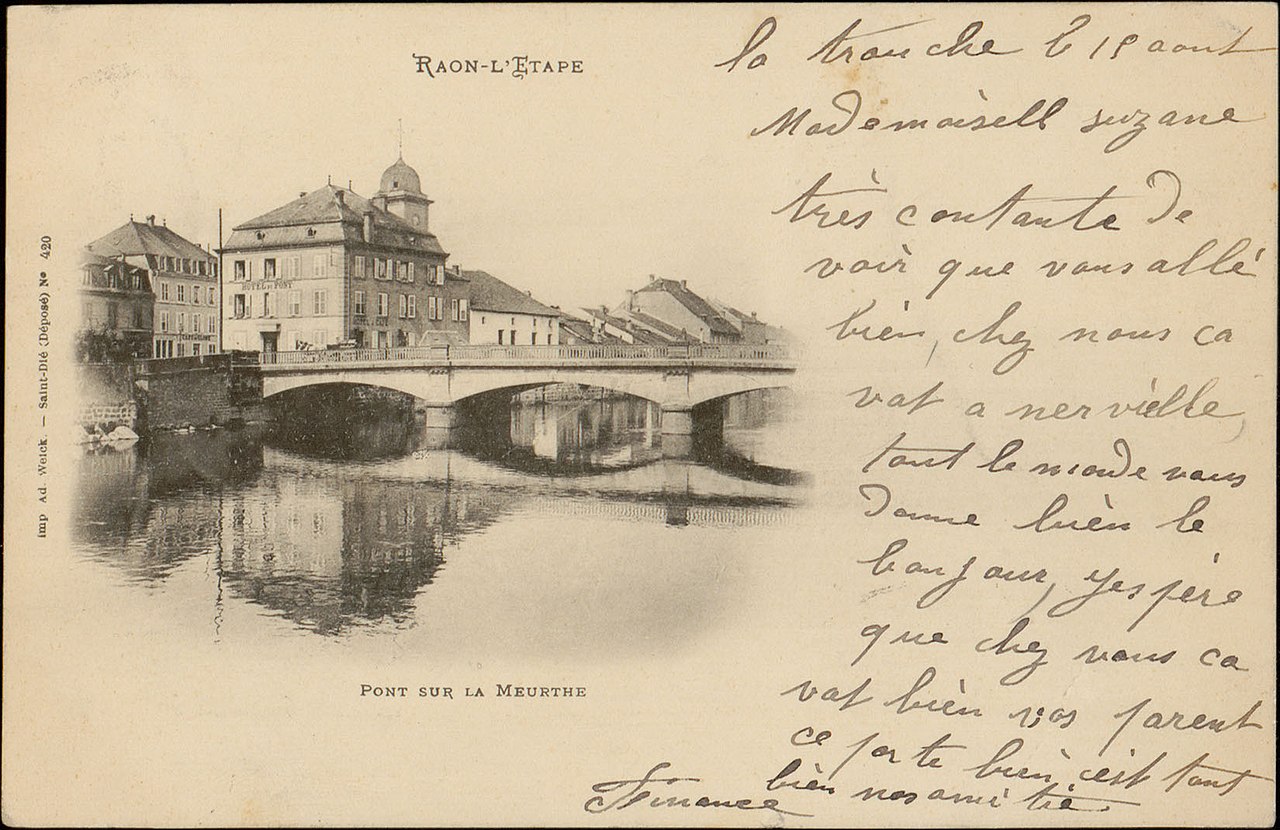 RAON-L'ETAPE
Imp Ad. Weick. — Saint-Dié (Déposé) No 420
HÔTEL DU PONT
PONT SUR LA MEURTHE
la trouche le 18 aout
Mademoisell suzane
très contante de
voir que vous allé
bien, chez nous ca
vat a nerviélle,
tout le monde vous
donne bien le
bonjour, yespère
que chez vous ca
vat bien vos parent
ce porte bien c'est tout
bien nos amitié